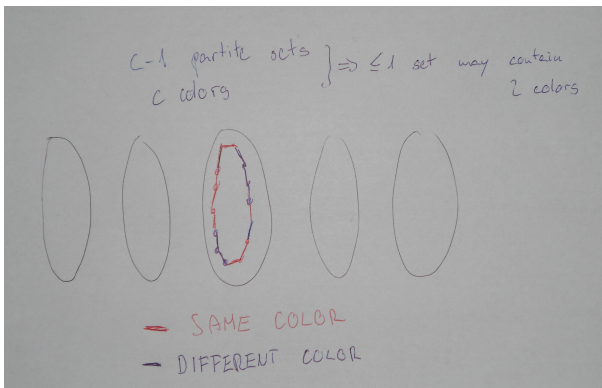 C-1 partite sets
c colors
} ⇒ ≤ 1 set may contain
2 colors
— SAME COLOR
— DIFFERENT COLOR